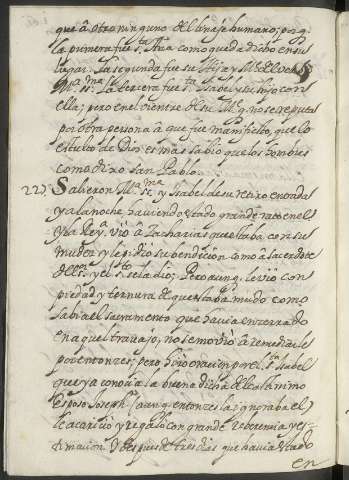 que â otro ninguno del linaje humano; porq.
la primera fue S.ta Ana como queda dicho en su
lugar. La segunda fue su Hija y M.e del Verbo
M.a SS.ma La tercera fue S.ta Isabel y su hijo con
ella; pero en el vientre de su M.e q. no se reputa
por otra persona â que fue manifiesto, que lo
estulto de Dios es mas sabio que los hombres
como dixo san Pablo.
227. Salieron M.a SS.ma y Isabel de su retiro entrada
ya la noche haviendo estado grande rato en el
y la Reyna vio â Zacharias que estaba con su
mudez y le pidio su bendicion como â sacerdote
del S.or y el S.to se la dio; Pero aunq. le vio con
piedad y ternura de que estaba mudo como
sabia el sacramento que havia encerrado
en aquel travajo, no se movio â remediarle
por entonzes; pero hizo oracion por el. S.ta Isabel
que ya conocia la buena dicha del castissimo
esposo Joseph (aunq. entonzes la ignoraba el)
le acaricio y regalo con grande reberencia y es-
timacion. Y despues de tres dias que havia estado
en